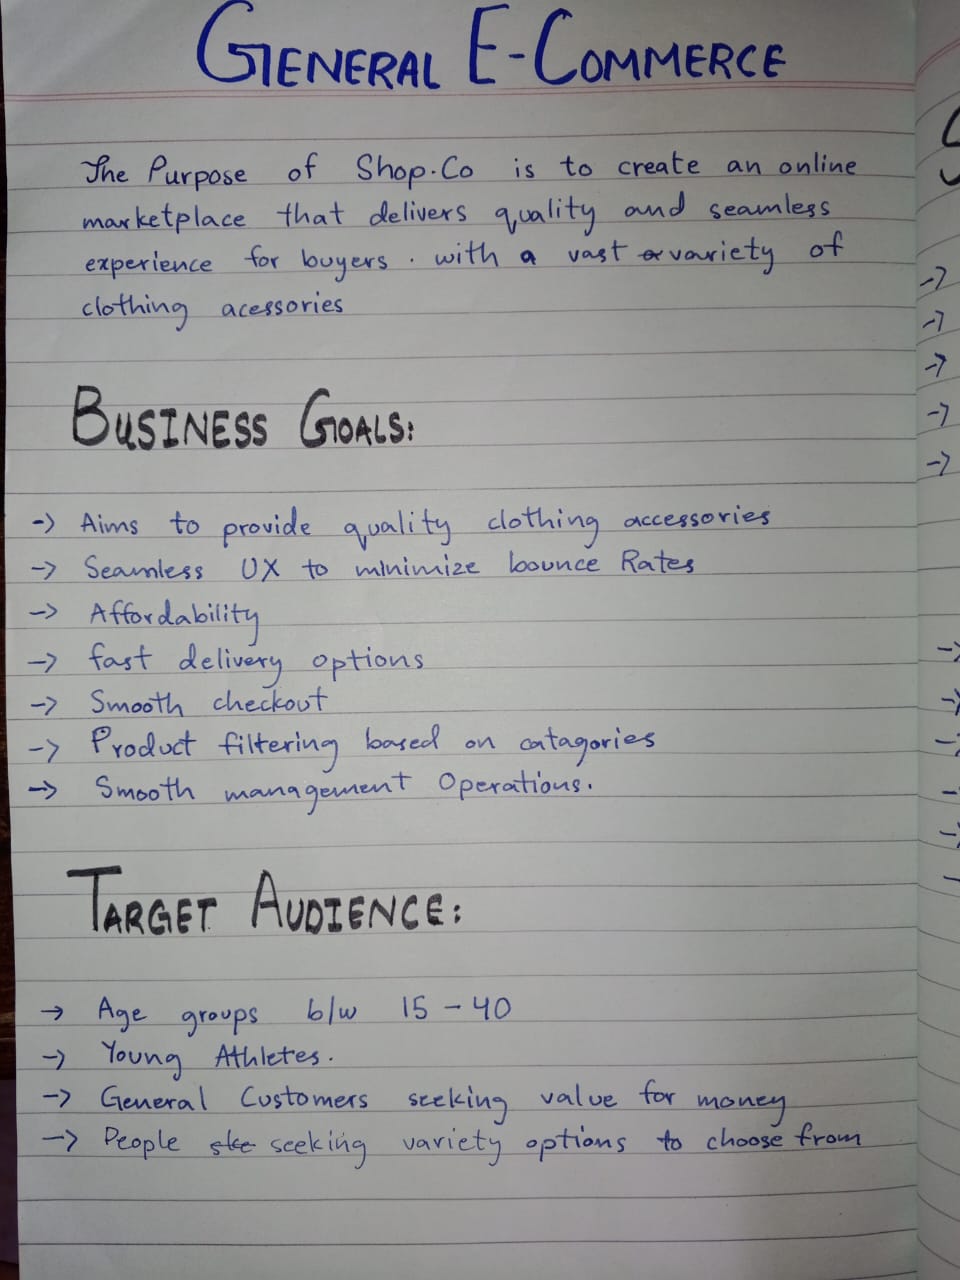 GENERAL E-COMMERCE
The Purpose of Shop.Co is to create an online
marketplace that delivers quality and seamless
experience for buyers. with a vast variety of
clothing acessories
BUSINESS GOALS:
-> Aims to provide quality clothing accessories
-> Seamless UX to minimize bounce Rates
-> Affordability
-> fast delivery options
-> Smooth checkout
-> Product filtering based on catagories
-> Smooth management Operations.
TARGET AUDIENCE:
-> Age groups b/w 15 - 40
-> Young Athletes.
-> General Customers seeking value for money
-> People seeking variety options to choose from